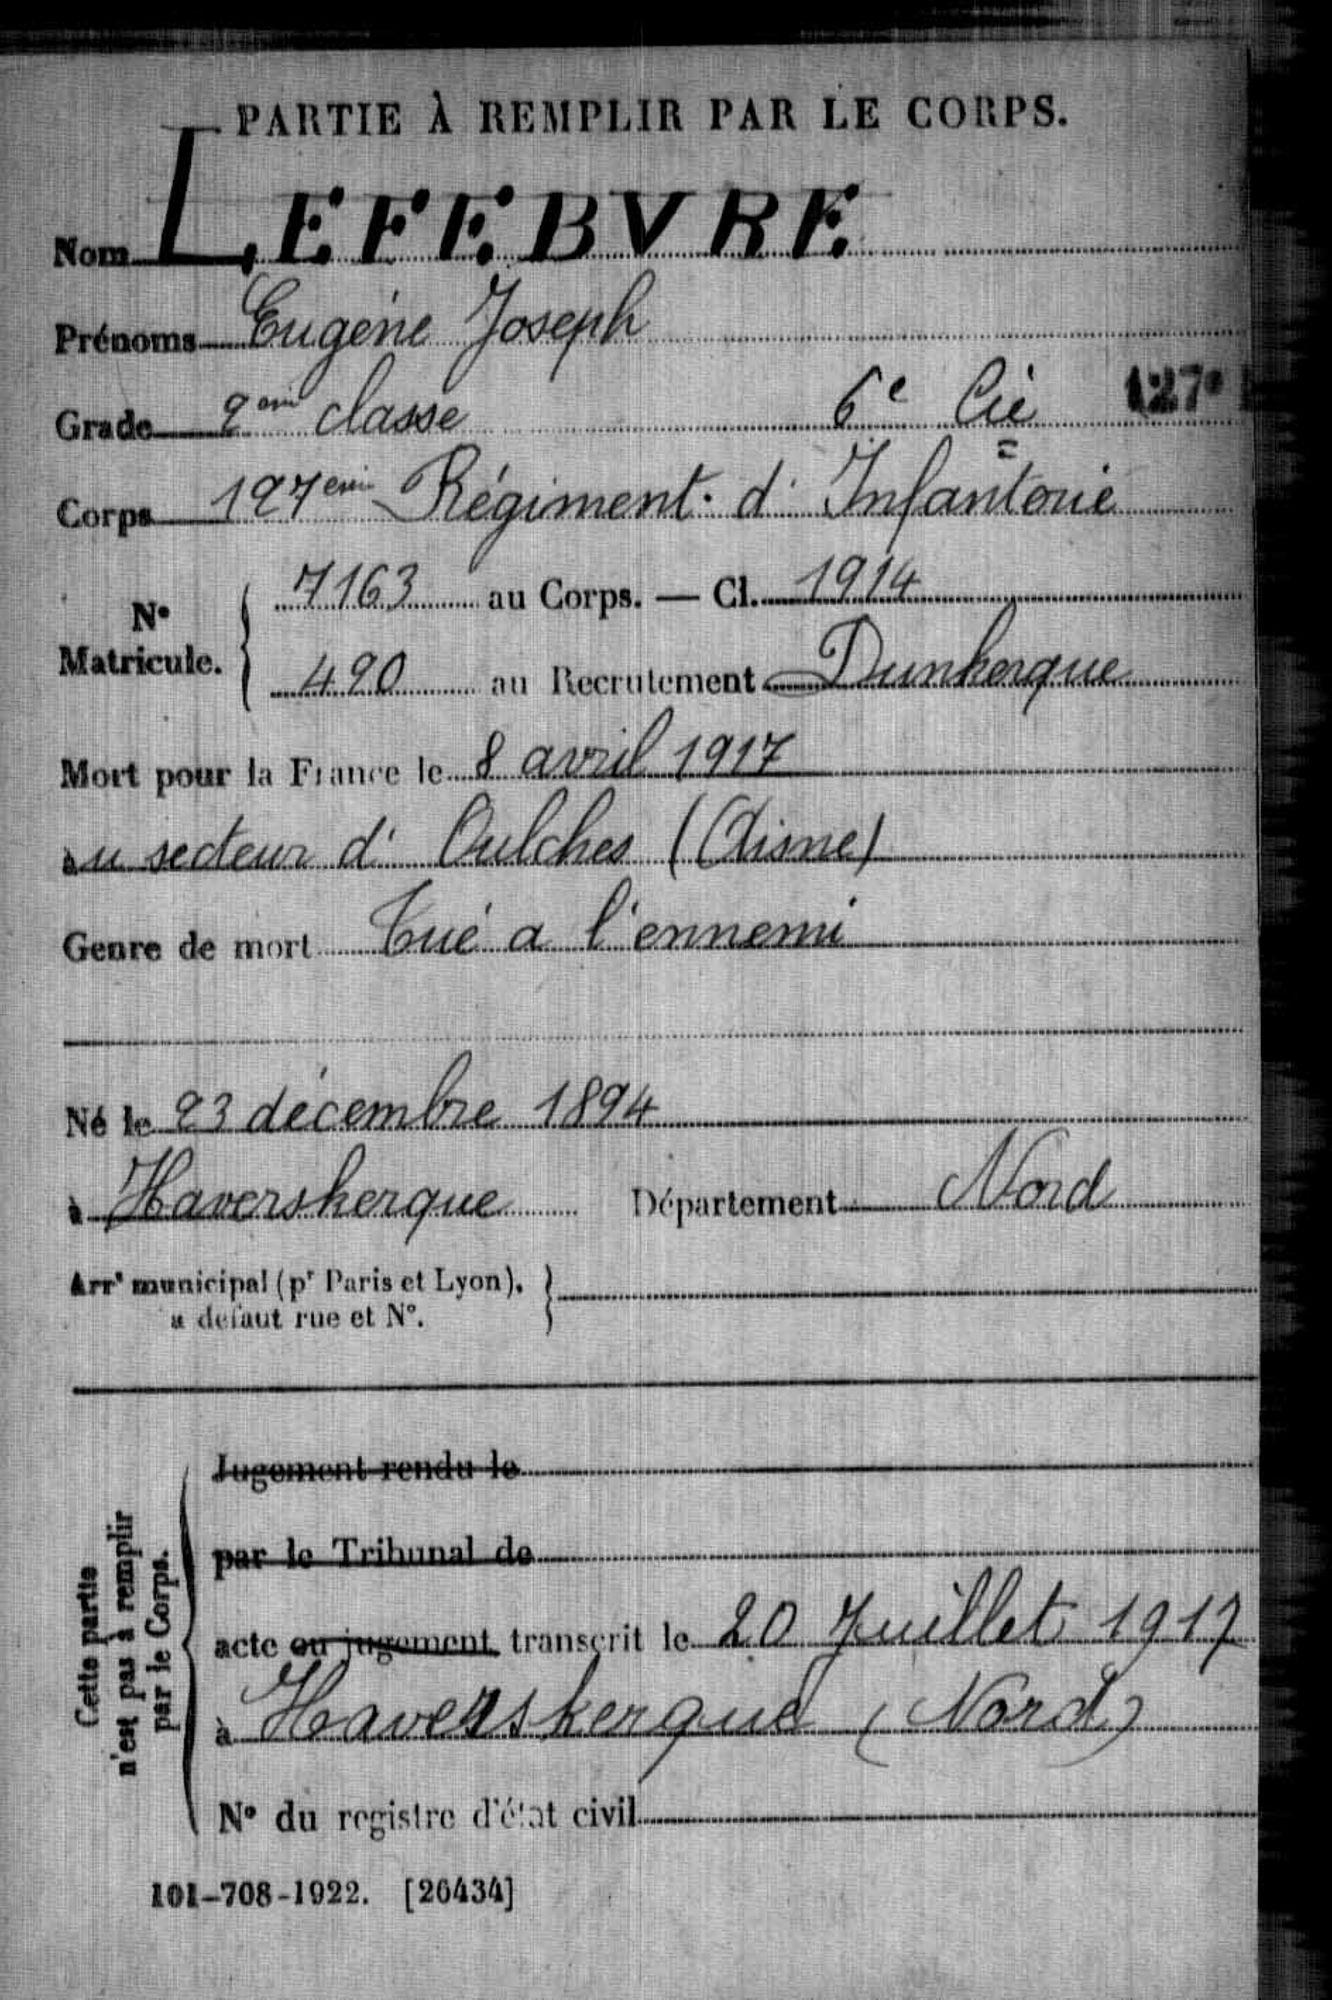 PARTIE À REMPLIR PAR LE CORPS.
Nom LEFEBVRE
Prénoms Eugéne Joseph
Grade 2eme classe 6e Cie 127e
Corps 127eme Régiment d'Infanterie
N° Matricule. 7163 au Corps. — Cl. 1914
490 au Recrutement Dunkerque
Mort pour la France le 8 avril 1917
au secteur d'Oulches (Aisne)
Genre de mort Tué a l'ennemi
Né le 23 décembre 1894
à Haverskerque Département Nord
Arrt municipal (pr Paris et Lyon),
a defaut rue et N°.
Jugement rendu le
par le Tribunal de
acte ou jugement transcrit le 20 Juillet 1917
à Haverskerque (Nord)
N° du registre d'état civil
Cette partie
n'est pas à remplir
par le Corps.
101-708-1922. [26434]